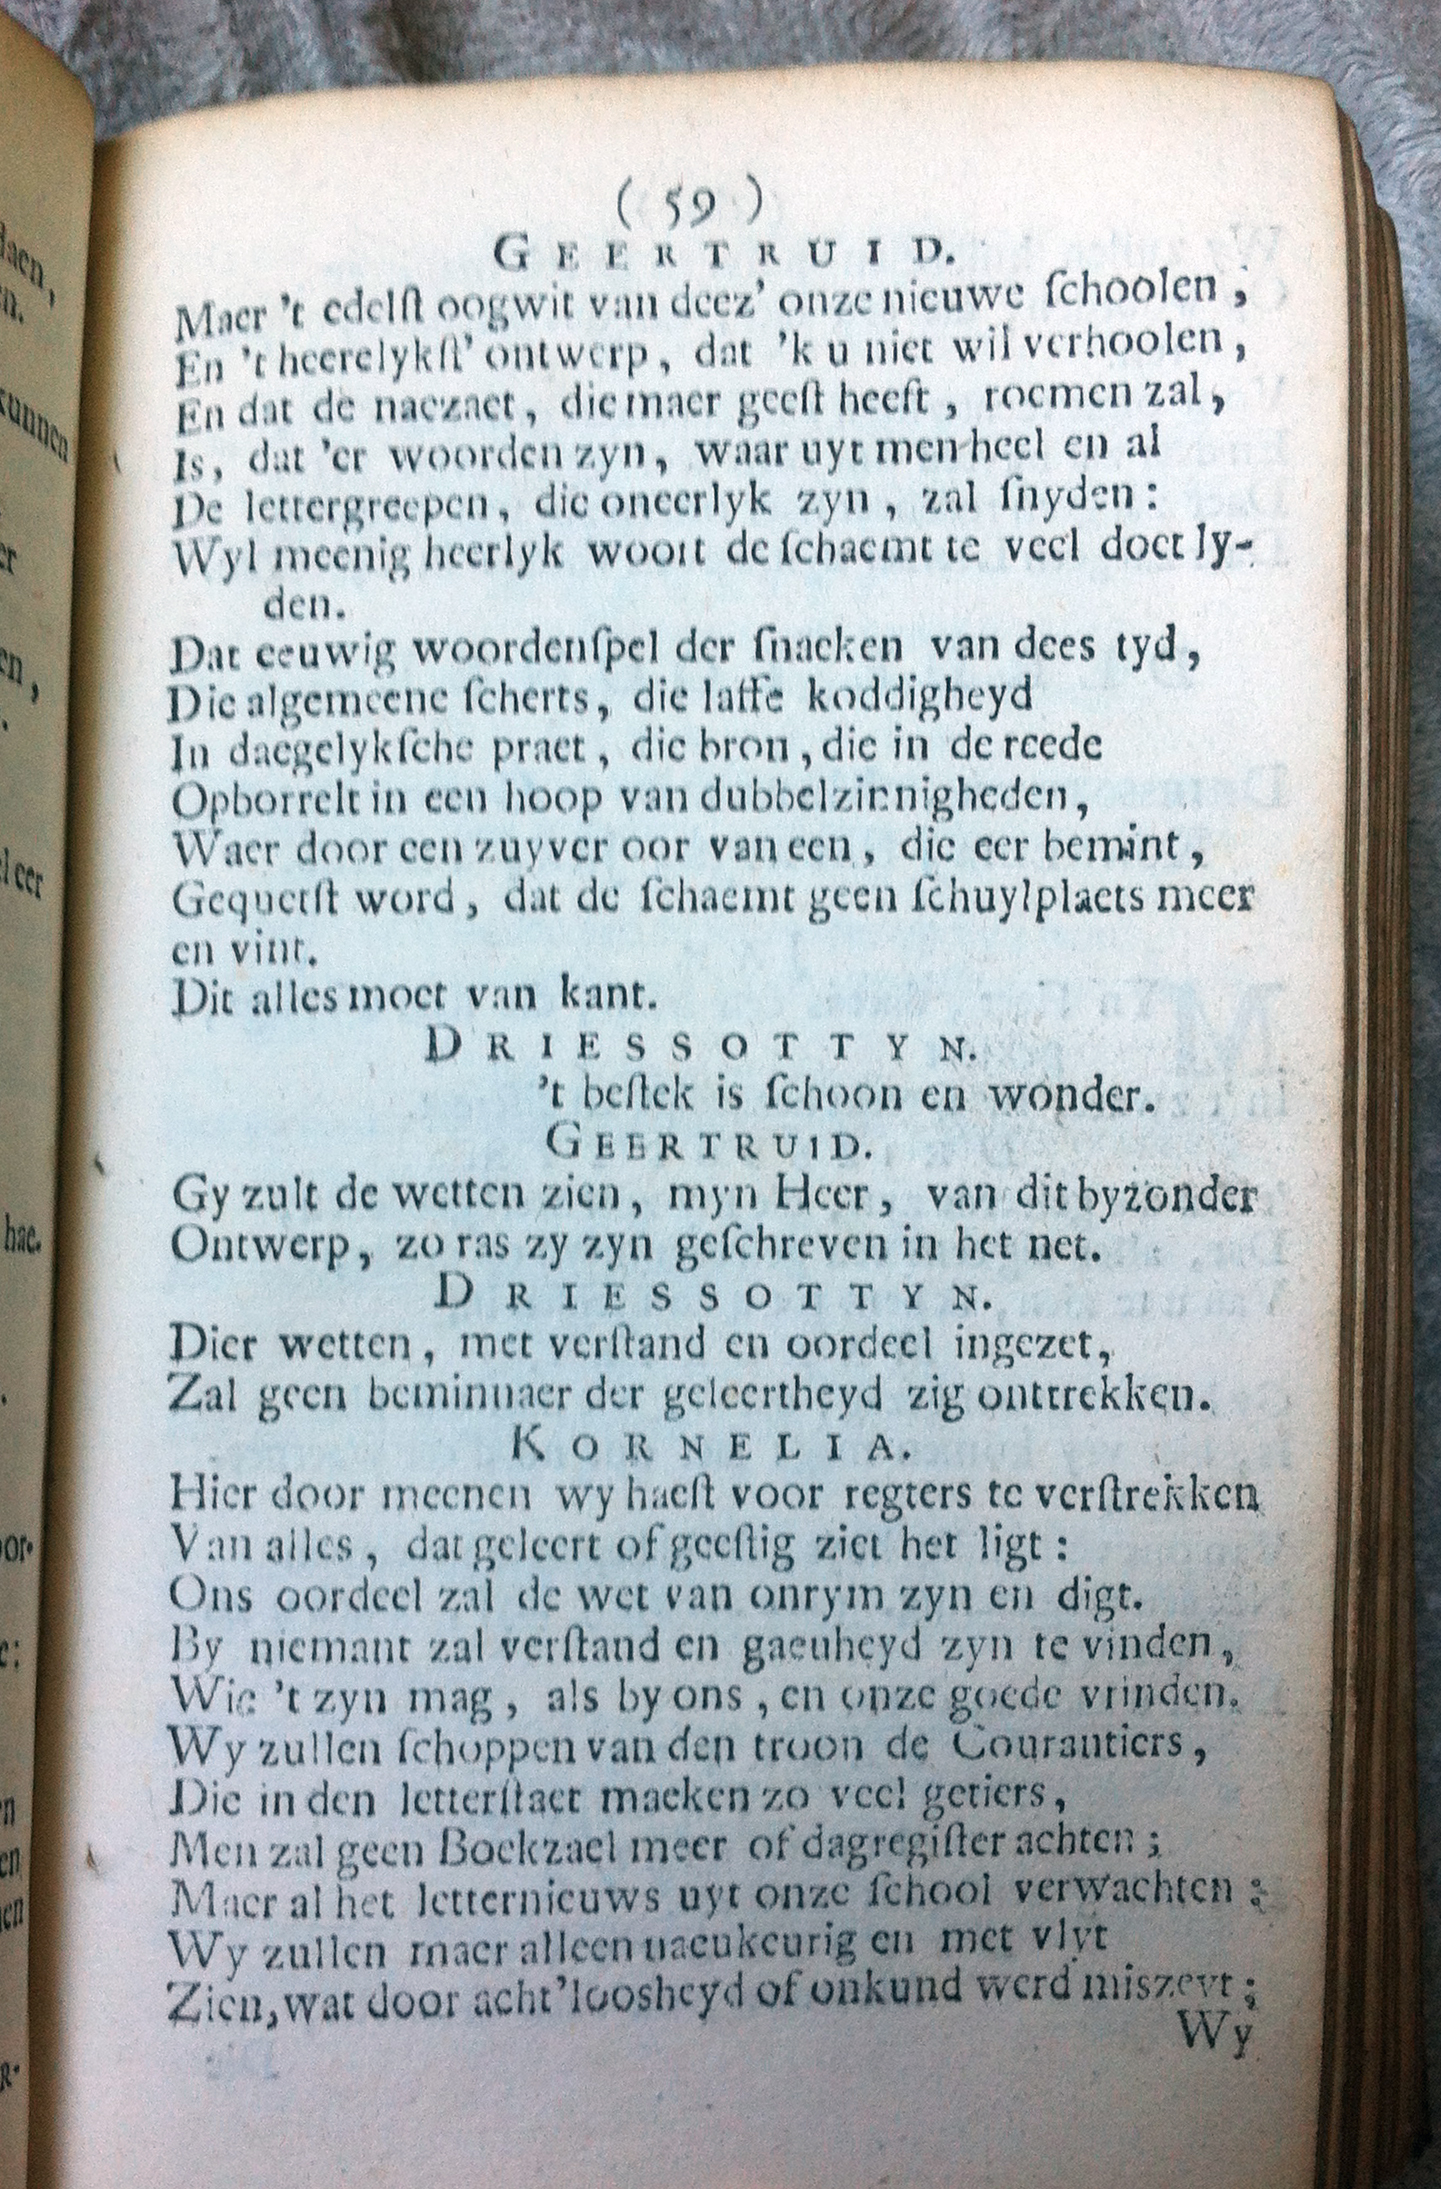 ( 59 )
GEERTRUID.
Maer 't edelſt oogwit van deez' onze nieuwe ſchoolen ;
En 't heerelykſt' ontwerp, dat 'k u niet wil verhoolen,
En dat de naezaet, die maer geeſt heeft, roemen zal,
Is, dat 'er woorden zyn, waar uyt men heel en al
De lettergreepen, die oneerlyk zyn, zal ſnyden:
Wyl meenig heerlyk woort de ſchaemt te veel doet ly-
den.
Dat eeuwig woordenſpel der ſnaeken van dees tyd,
Die algemeene ſcherts, die laffe koddigheyd
In daegelykſche praet, die bron, die in de reede
Opborrelt in een hoop van dubbelzinnigheden,
Waer door een zuyver oor van een, die eer bemint,
Gequetſt word, dat de ſchaemt geen ſchuylplaets meer
en vint.
Dit alles moet van kant.
DRIESSOTTYN.
't beſtek is ſchoon en wonder.
GEERTRUID.
Gy zult de wetten zien, myn Heer, van dit byzonder
Ontwerp, zo ras zy zyn geſchreven in het net.
DRIESSOTTYN.
Dier wetten, met verſtand en oordeel ingezet,
Zal geen beminnaer der geleertheyd zig onttrekken.
KORNELIA.
Hier door meenen wy haeſt voor regters te verſtrekken
Van alles, dat geleert of geeſtig ziet het ligt:
Ons oordeel zal de wet van onrym zyn en digt.
By niemant zal verſtand en gaeuheyd zyn te vinden,
Wie 't zyn mag, als by ons, en onze goede vrinden.
Wy zullen ſchoppen van den troon de Courantiers,
Die in den letterſtaet maeken zo veel getiers,
Men zal geen Boekzael meer of dagregiſter achten;
Maer al het letternieuws uyt onze ſchool verwachten;
Wy zullen maer alleen naeukeurig en met vlyt
Zien, wat door acht'loosheyd of onkund werd miszeyt;
Wy